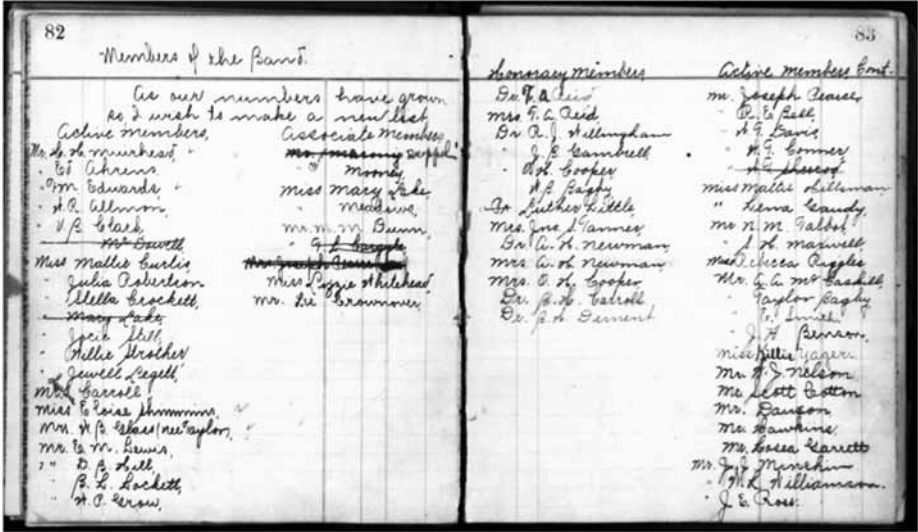 82
Members of the Band.
As our numbers have grown
so, I wish to make a new list,
Active members,
Mr. H. H. Muirhead,
" Ed Ahrens
" M. Edwards
" W. R. Allmon,
" V. B. Clark,
" McDowell
Miss Mattie Curtis,
" Julia Robertson
" Stella Crockett,
" Mary Lake,
" Jocie Still,
" Willie Strother
" Jewell Legett,
Carroll
Miss Eloise
Mrs. W. B. Glass (nee Taylor),
Mr. E. M. Lewis,
" " D. B. Hill,
" B. L. Lockett,
" W. P. Grow,
Associate Members
Mooney,
Miss Mary Lake,
" Meadows,
Mr. M. M. Dunn,
" Cargyle
Mr. Joseph
Miss Lizzie Whitehead,
Mr. Crownover,
83
Honorary Members
Dr. T. A. Reid
Mrs. T. A. Reid,
Dr. R. J. Willingham
" J. B. Gambrell
" O. H. Cooper
" W. B. Bagby
Dr. Luther Little,
Mrs. Jno. S. Tanner,
Dr. A. H. Newman,
Mrs. A. H. Newman,
Mrs. O. H. Cooper,
Dr. B. H. Carroll
Dr. B. H. Dement
Active Members Cont.
Mr. Joseph Pearce,
" R. E. Bell,
" Davis,
" W. T. Conner
" Sherrod
Miss Mattie Hillsman
" Lena Gaudy,
Mr. N. M. Talbot,
" S. H. Maxwell,
Miss Rebecca Ruggles
Mr. A. A. McCaskill,
" Taylor Bagby
" E. Smith
" J. H. Benson,
Miss Killie Yager
Mr. W. J. Nelson
Mr. Scott Cotton
Mr. Dawson,
Mr. Hawkins,
Mr. Hosea Garrett
Mr. J. J. Minchin
" M. L. Williamson.
" J. E. Ross.